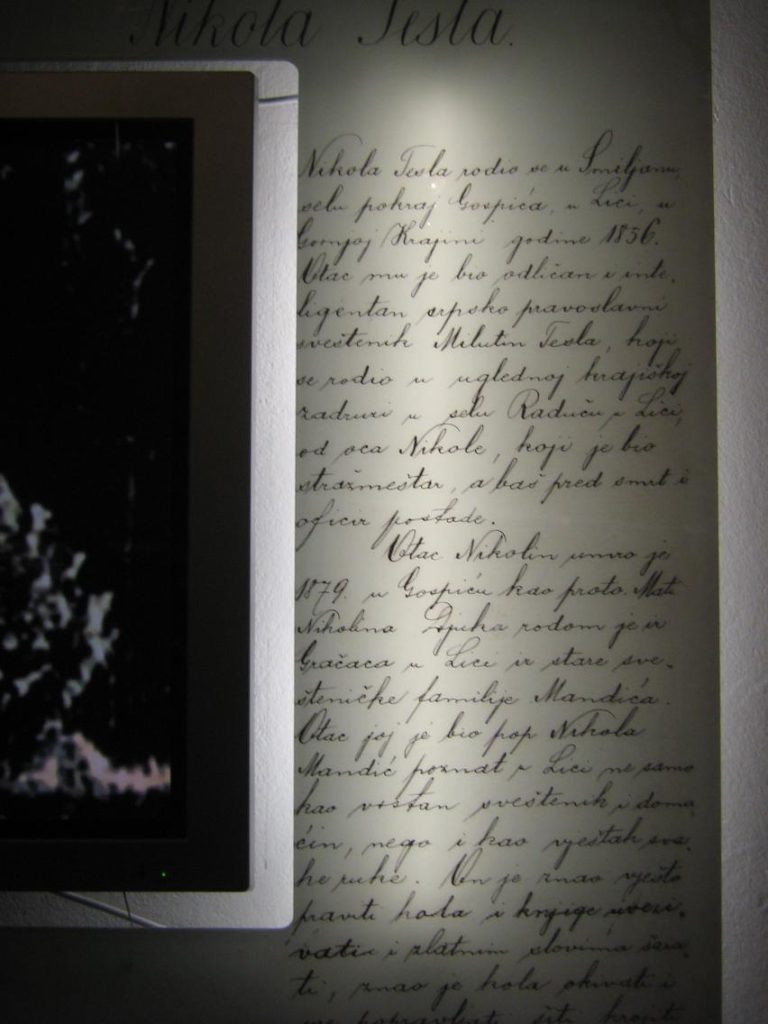 Nikola Tesla.
Nikola Tesla rodio se u Smiljanu,
selu pokraj Gospića, u Lici, u
Gornjoj Krajini godine 1856.
Otac mu je bio odličan i inte-
ligentan srpsko pravoslavni
sveštenik Milutin Tesla, koji
se rodio u uglednoj krajiškoj
zadruzi u selu Raduču u Lici,
od oca Nikole, koji je bio
stražmeštar, a baš pred smrt i
oficir postade.
Otac Nikolin umro je
1879. u Gospiću kao proto. Mati
Nikolina Djuka rodom je iz
Gračaca u Lici iz stare sve-
šteničke familije Mandića.
Otac joj je bio pop Nikola
Mandić poznat u Lici ne samo
kao vrstan sveštenik i doma-
ćin, nego i kao vještak sva-
ke ruke. On je znao vješto
praviti kola i knjige uvezi-
vati i zlatnim slovima šara-
ti, znao je kola okivati i
sve popravljati, šiti, krojiti